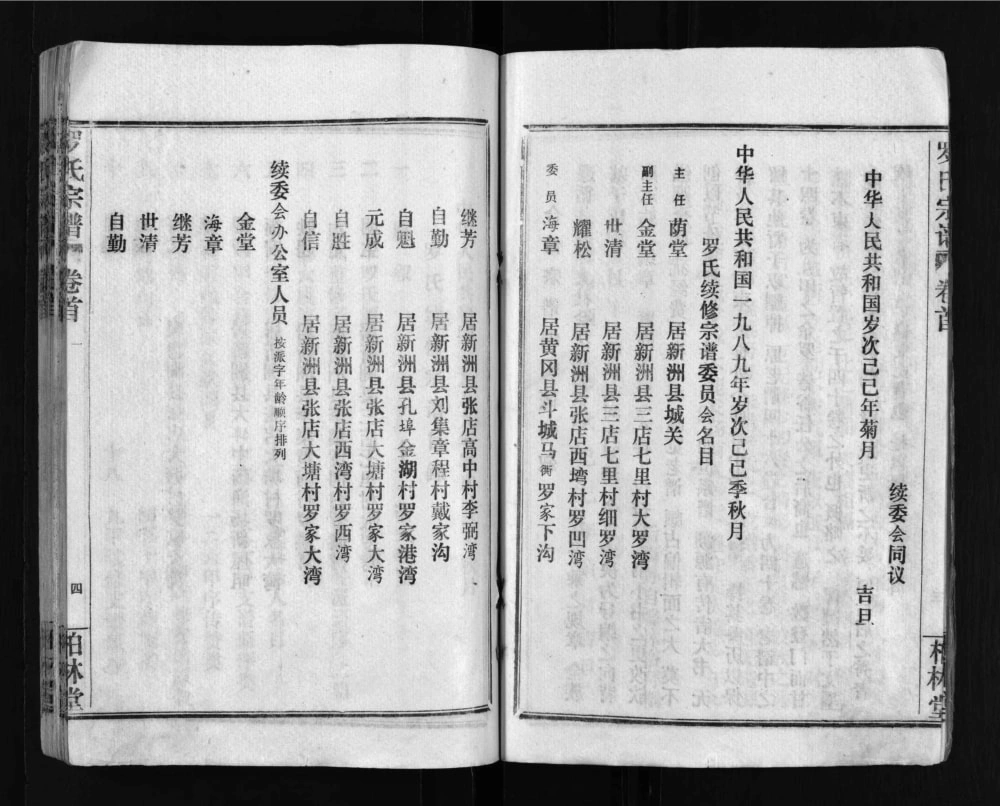 罗氏宗谱 卷首
柏林堂
续委会同议
中华人民共和国岁次己巳年菊月 吉旦
中华人民共和国一九八九年岁次己巳季秋月
罗氏续修宗谱委员会名目
主任 荫堂 居新洲县城关
副主任 金堂 居新洲县三店七里村大罗湾
世清 居新洲县三店七里村细罗湾
耀松 居新洲县张店西塆村罗凹湾
委员 海章 居黄冈县斗城马衖罗家下沟
继芳 居新洲县张店高中村李弼湾
自勤 居新洲县刘集章程村戴家沟
自魁 居新洲县孔埠金湖村罗家港湾
元成 居新洲县张店大塘村罗家大湾
自胜 居新洲县张店西湾村罗西湾
自信 居新洲县张店大塘村罗家大湾
续委会办公室人员 按派字年龄顺序排列
金堂
海章
继芳
世清
自勤
罗氏宗谱 卷首 一
四
柏林堂